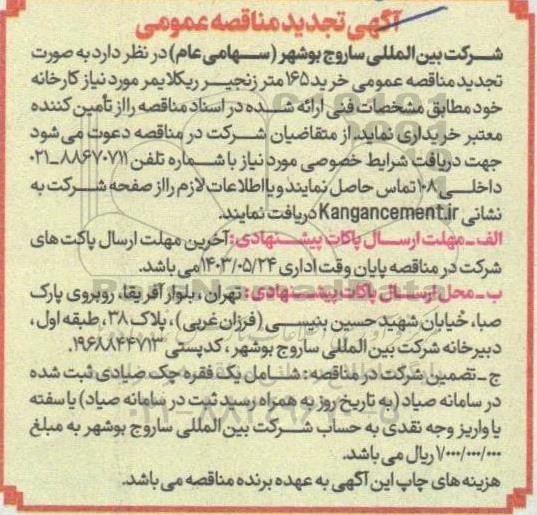 آگهی تجدید مناقصه عمومی
شرکت بین المللی ساروج بوشهر (سهامی عام) در نظر دارد به صورت
تجدید مناقصه عمومی خرید ۱۶۵ متر زنجیر ریکلایمر مورد نیاز کارخانه
خود مطابق مشخصات فنی ارائه شده در اسناد مناقصه را از تأمین کننده
معتبر خریداری نماید. از متقاضیان شرکت در مناقصه دعوت می شود
جهت دریافت شرایط خصوصی مورد نیاز با شماره تلفن ۸۸۶۷۰۷۱۱-۰۲۱
داخلی ۱۰۸ تماس حاصل نمایند و یا اطلاعات لازم را از صفحه شرکت به
نشانی Kangancement.ir دریافت نمایند.
الف-مهلت ارسال پاکات پیشنهادی: آخرین مهلت ارسال پاکت های
شرکت در مناقصه پایان وقت اداری ۱۴۰۳/۰۵/۲۴ می باشد.
ب-محل ارسال پاکات پیشنهادی: تهران، بلوار آفریقا، روبروی پارک
صبا، خیابان شهید حسین بنیسی (فرزان غربی)، پلاک ۳۸، طبقه اول،
دبیرخانه شرکت بین المللی ساروج بوشهر، کدپستی ۱۹۶۸۸۴۴۷۱۳.
ج-تضمین شرکت در مناقصه: شامل یک فقره چک صیادی ثبت شده
در سامانه صیاد (به تاریخ روز به همراه رسید ثبت در سامانه صیاد) یا سفته
یا واریز وجه نقدی به حساب شرکت بین المللی ساروج بوشهر به مبلغ
۷/۰۰۰/۰۰۰/۰۰۰ ریال می باشد.
هزینه های چاپ این آگهی به عهده برنده مناقصه می باشد.